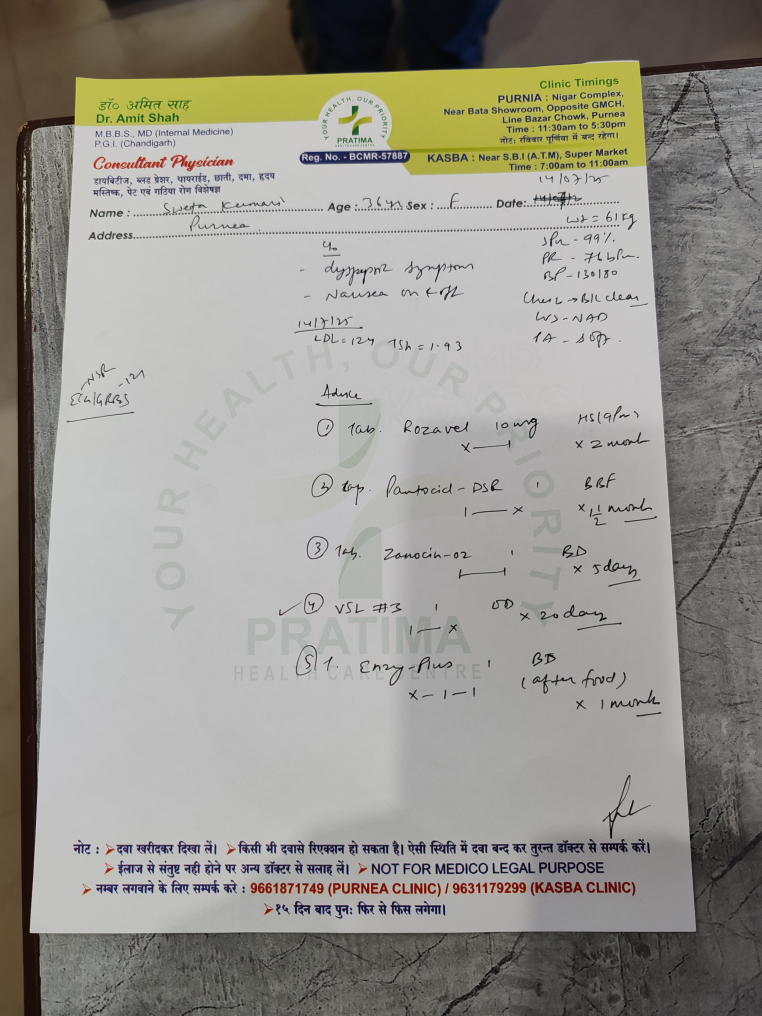 डॉ० अमित साह
Dr. Amit Shah
M.B.B.S., MD (Internal Medicine)
P.G.I. (Chandigarh)
Consultant Physician
डायबिटीज, ब्लड प्रेशर, थायराईड, छाती, दमा, हृदय
मस्तिष्क, पेट एवं गठिया रोग विशेषज्ञ
YOUR HEALTH, OUR PRIORITY
PRATIMA
HEALTH CARE CENTRE
Reg. No. - BCMR-57887
Clinic Timings
PURNIA : Nigar Complex,
Near Bata Showroom, Opposite GMCH,
Line Bazar Chowk, Purnea
Time : 11:30am to 5:30pm
नोट: रविवार पूर्णिया में बन्द रहेगा।
KASBA : Near S.B.I (A.T.M), Super Market
Time : 7:00am to 11:00am
14/07/25
Name : Sweta Kumari Age : 36 yr Sex : F Date:
Address Purnea
Wt = 61 kg
SPO2 - 99%
PR - 76 bpm
BP - 130/80
Chest → B/L clear
CVS - NAD
PA - soft
c/o
- dyspeptic symptoms
- Nausea on & off
14/7/25
LDL = 124 TSH = 1.93
NSR - 121
ECG/GRBS
Advice
① Tab. Rozavel 10mg HS (9pm)
x—1 x 2 month
② Cap. Pantocid-DSR 1 BBF
1—x x 1 1/2 month
③ Tab. Zanocin-OZ 1 BD
1—1 x 5 days
④ VSL #3 1 OD
1—x x 20 days
⑤ T. Enzy-Plus 1 BD
(after food)
x-1-1 x 1 month
YOUR HEALTH, OUR PRIORITY
PRATIMA
HEALTH CARE CENTRE
नोट : ➤दवा खरीदकर दिखा लें। ➤किसी भी दवासे रिएक्शन हो सकता है। ऐसी स्थिति में दवा बन्द कर तुरन्त डॉक्टर से सम्पर्क करें।
➤ईलाज से संतुष्ट नही होने पर अन्य डॉक्टर से सलाह लें। ➤NOT FOR MEDICO LEGAL PURPOSE
➤नम्बर लगवाने के लिए सम्पर्क करे : 9661871749 (PURNEA CLINIC) / 9631179299 (KASBA CLINIC)
➤१५ दिन बाद पुनः फिर से फिस लगेगा।